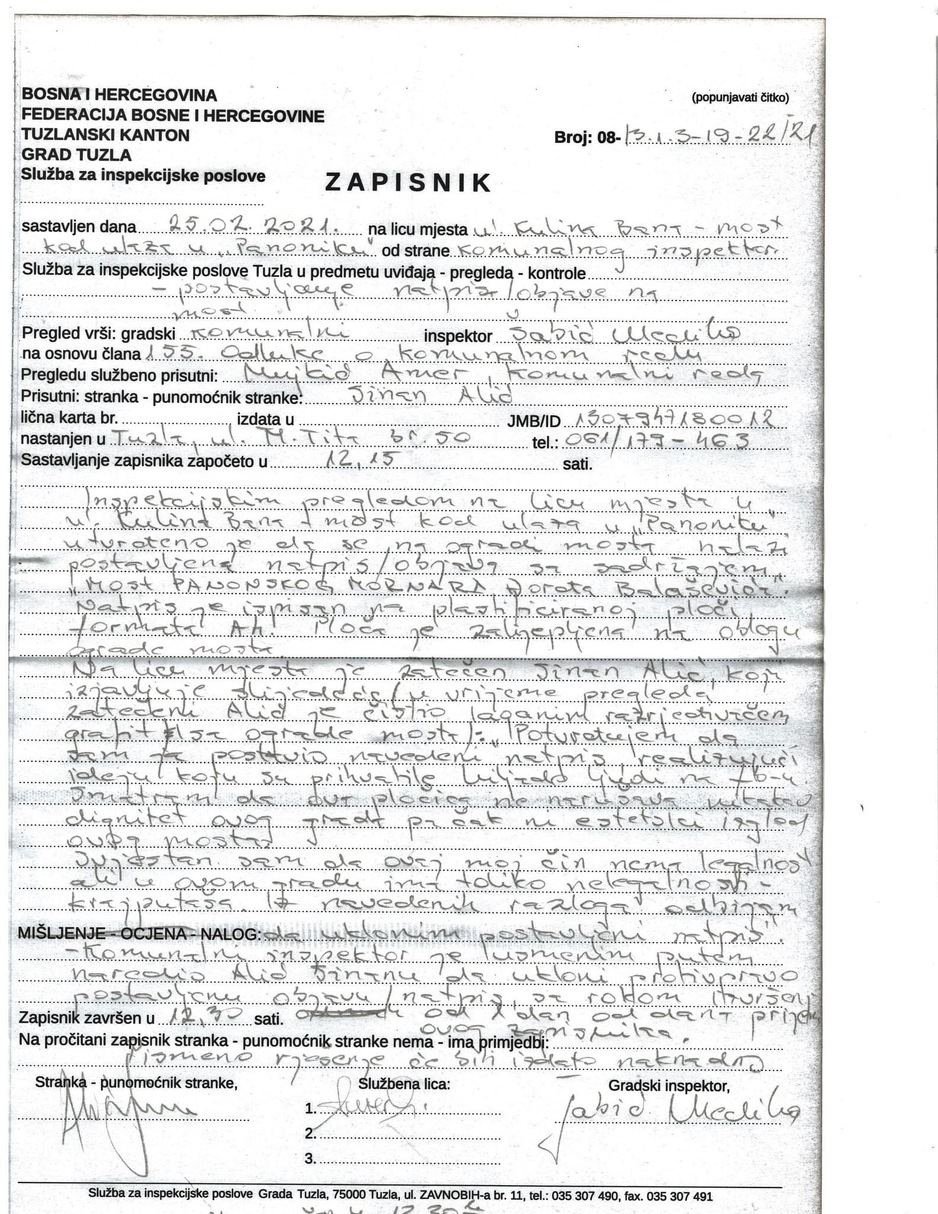 BOSNA I HERCEGOVINA
(popunjavati čitko)
FEDERACIJA BOSNE I HERCEGOVINE
TUZLANSKI KANTON
Broj: 08-13.1.3-19-22/21
GRAD TUZLA
Služba za inspekcijske poslove
ZAPISNIK
sastavljen dana 25.02.2021. na licu mjesta ul. Kulina Bana - most
kod ulaza u „Panoniku" od strane komunalnog inspektora
Služba za inspekcijske poslove Tuzla u predmetu uviđaja - pregleda - kontrole
- postavljanje natpisa/objave na
most
Pregled vrši: gradski komunalni inspektor Šabić Mediha
na osnovu člana 155. Odluke o komunalnom redu
Pregledu službeno prisutni: Mujkić Amer, komunalni redar
Prisutni: stranka - punomoćnik stranke: Sinan Alić
lična karta br. izdata u JMB/ID
nastanjen u Tuzla, ul. M. Tita br. 50 tel.: 061/179-463
Sastavljanje zapisnika započeto u 12,15 sati.
Inspekcijskim pregledom na licu mjesta u
ul. Kulina Bana - most kod ulaza u „Panoniku"
utvrđeno je da se na ogradi mosta nalazi
postavljena natpis/objava sa sadržajem
„MOST PANONSKOG MORNARA Đorđa Balaševića".
Natpis je ispisan na plastificiranoj ploči
formata A4. Ploča je zalijepljena na oblogu
ograde mosta.
Na licu mjesta je zatečen Sinan Alić, koji
izjavljuje slijedeće (u vrijeme pregleda
zatečeni Alić je čistio laganim razrjeđivačem
grafit sa ograde mosta): „Potvrđujem da
sam ja postavio navedeni natpis realizujući
ideju koju su prihvatile hiljade ljudi na fb-u
Smatram da ova pločica ne narušava nikakav
dignitet ovog grada pa čak ni estetski izgled
ovog mosta
Svjestan sam da ovaj moj čin nema legalnost
ali u ovom gradu ima toliko nelegalnosti -
krajputaša. Iz navedenih razloga odbijam
MIŠLJENJE - OCJENA - NALOG: da uklonim postavljeni natpis".
- Komunalni inspektor je usmenim putem
naredio Alić Sinanu da ukloni protivpravno
postavljenu objavu/natpis, sa rokom izvršenja
Zapisnik završen u 12,30 sati. od 1 dan od dana prijema
ovog zapisnika.
Na pročitani zapisnik stranka - punomoćnik stranke nema - ima primjedbi:
Pismeno rješenje će biti izdato naknadno
Stranka - punomoćnik stranke,
Službena lica:
Gradski inspektor,
1.
Šabić Mediha
2.
3.
Služba za inspekcijske poslove Grada Tuzla, 75000 Tuzla, ul. ZAVNOBIH-a br. 11, tel.: 035 307 490, fax. 035 307 491